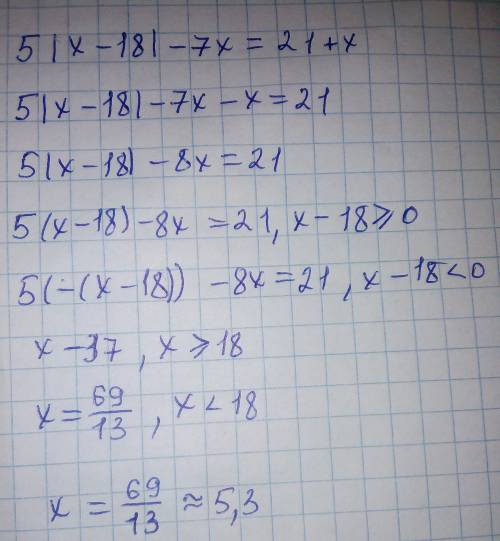 5|x-18|-7x=21+x
5|x-18|-7x-x=21
5|x-18|-8x=21
5(x-18)-8x=21, x-18⩾0
5(-(x-18))-8x=21, x-18<0
x-37, x⩾18
x=69/13, x<18
x=69/13≈5,3